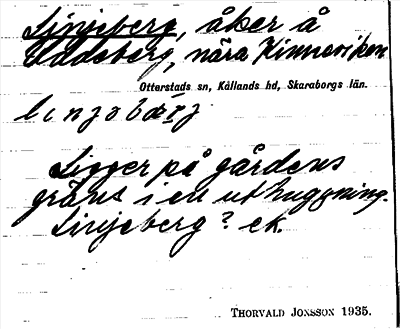 Linjeberg, åker å
Udseberg, nära Kinneviken
Otterstads sn, Kållands hd, Skaraborgs län.
linjebärj
Ligger på gårdens
gräns i en uthuggning.
Linjeberg? ek.
THORVALD JONSSON 1935.